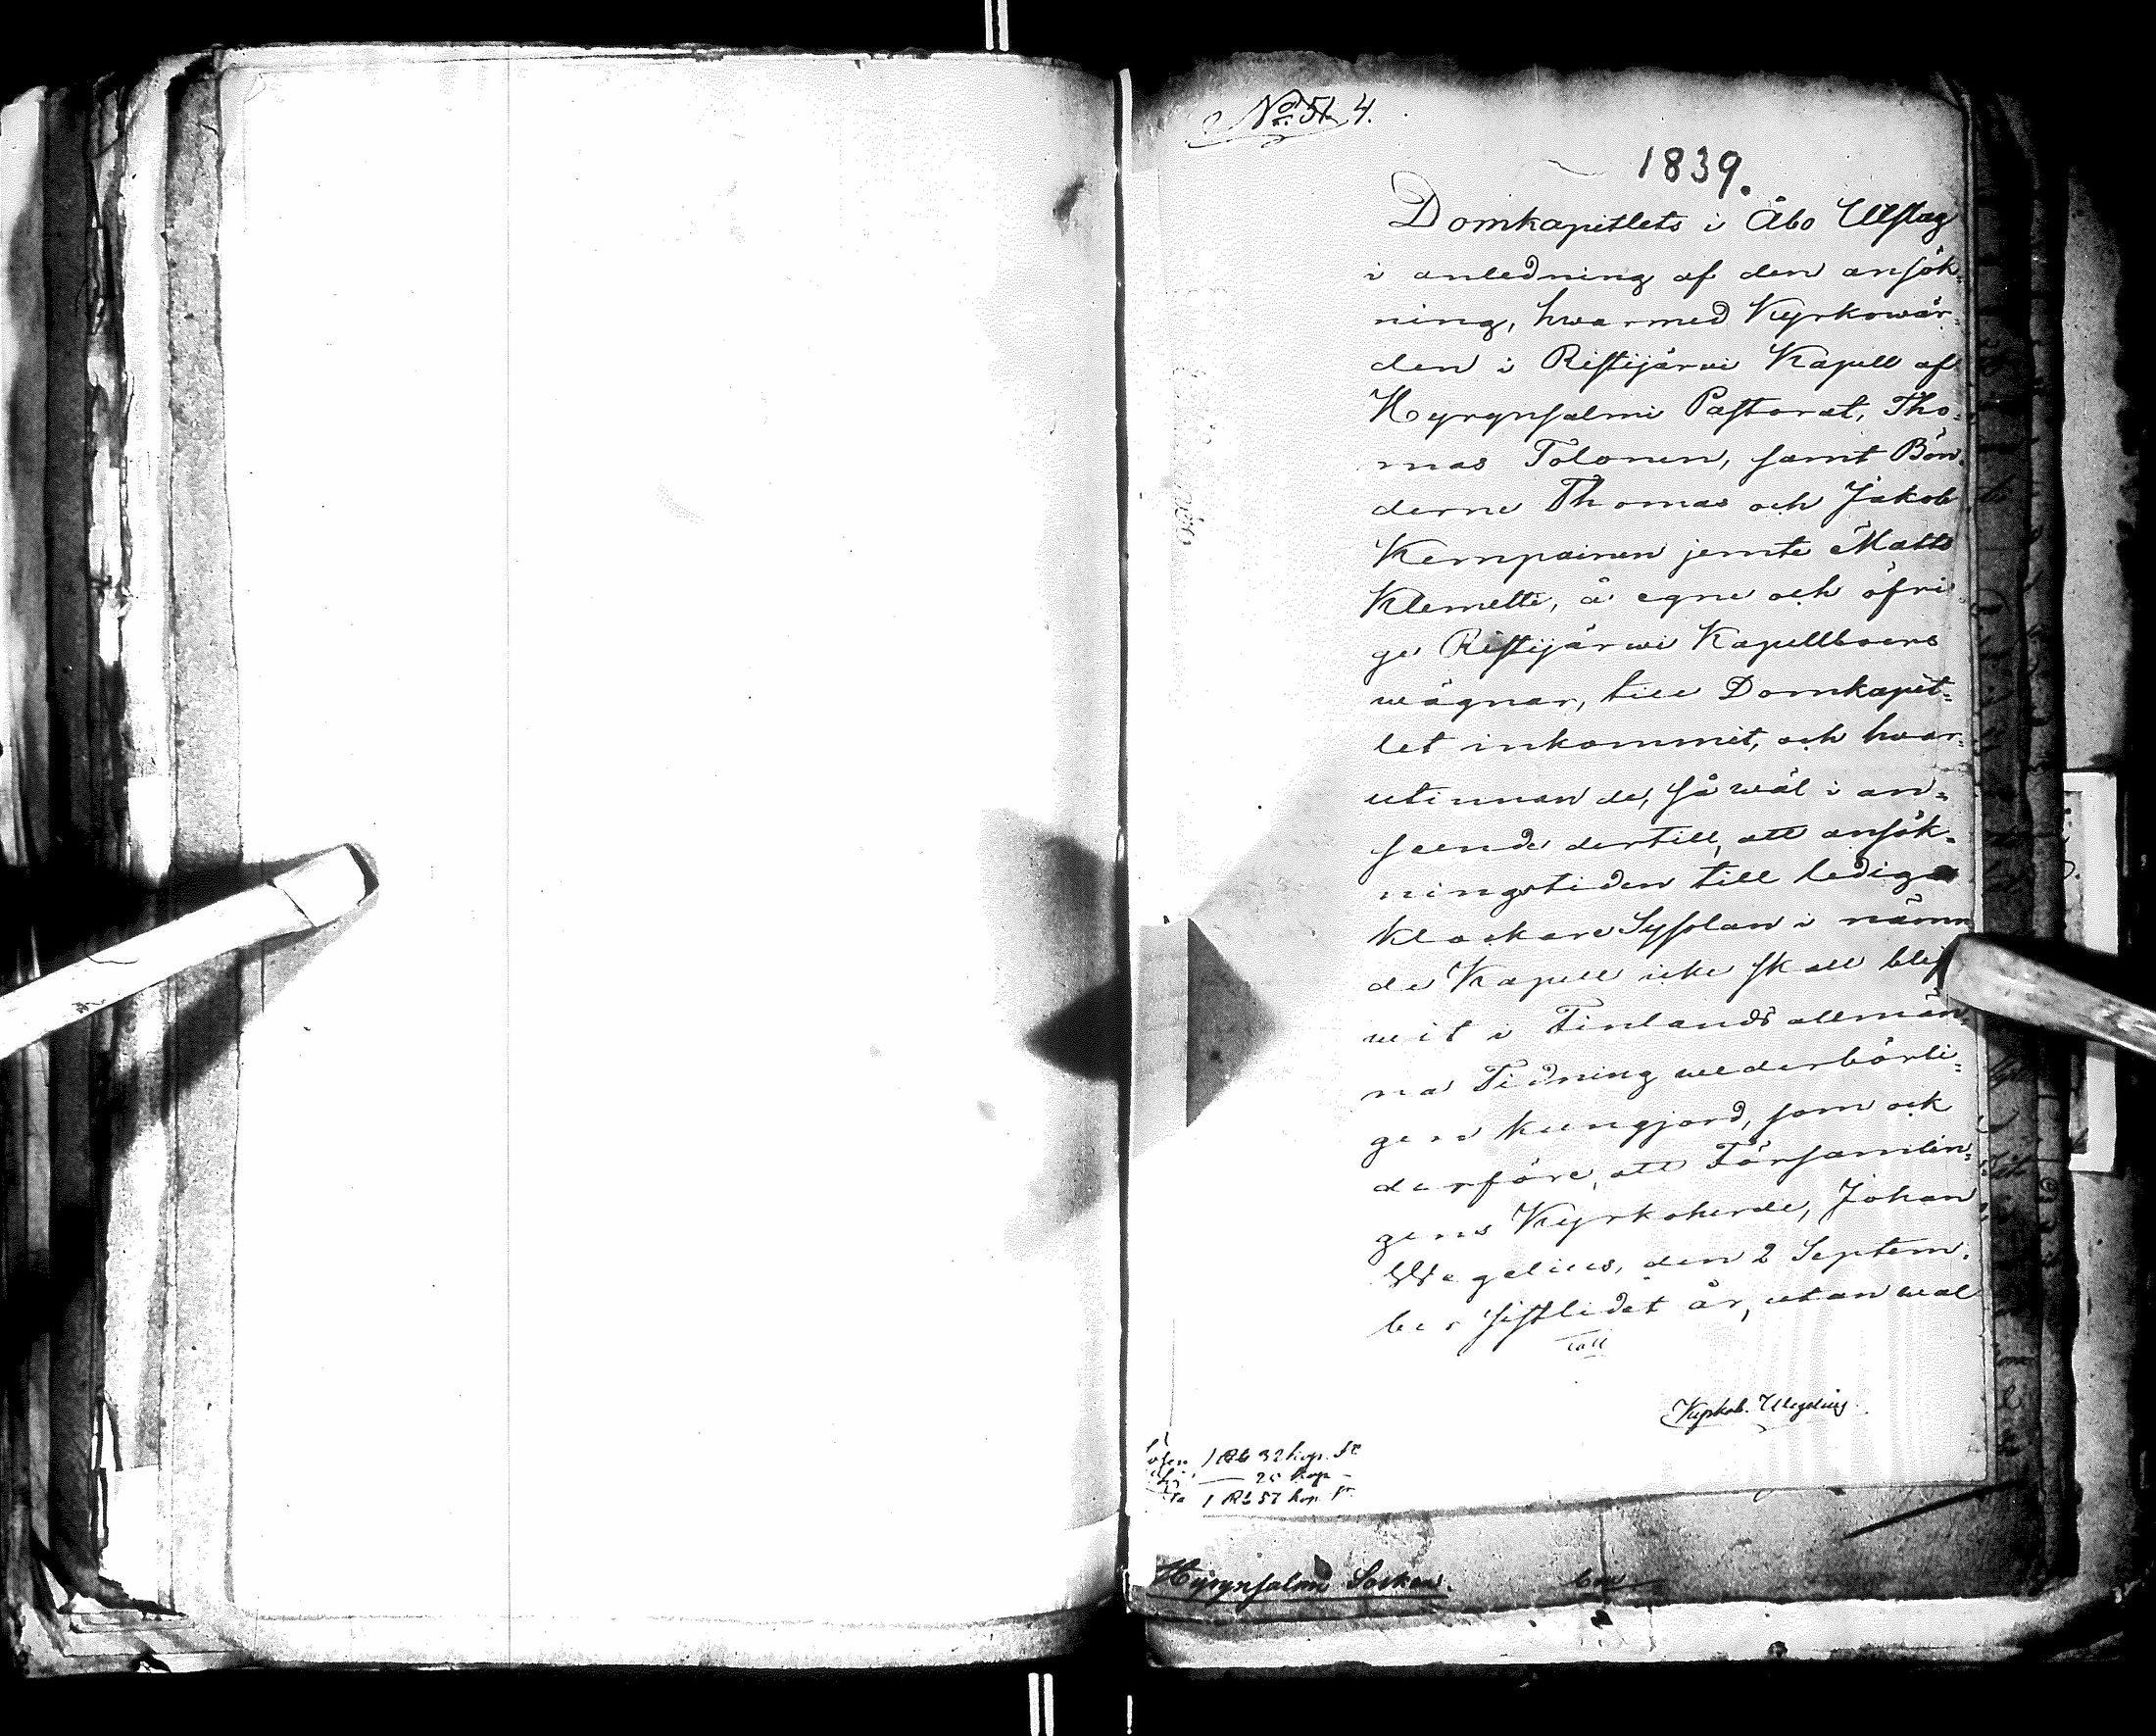 No 51. 4.
1839.
Domkapitlets i Åbo Utslag
i anledning af den ansök-
ning, hwarmed Kyrkowär-
den i Ristijärwi Kapell af
Hyrynsalmi Pastorat, Tho-
mas Tolonen, samt Bön-
derne Thomas och Jakob
Kempainen jemte Matts
Klemetti, å egne och öfri
ge Ristijärwi Kapellboers
wägnar, till Domkapit-
let inkommit, och hwar-
utinnan de, så wäl i an-
seende dertill, att ansök-
ningstiden till lediga
klockare Sysslan i nämn
de Kapell icke skall blif
wit i Finlands allmän-
na Tidning wederbörli-
gen kungjord, som ock
derföre, att Församlin-
gens Kyrkoherde, Johan
Wegelius, den 2 Septem-
ber sistlidet år, utan wal
Kyrkoh. Wegelius
1 Rb 32 kop. Sr
25 kop
1 Rb 57 kop. Sr
Hyrynsalmi Socken.